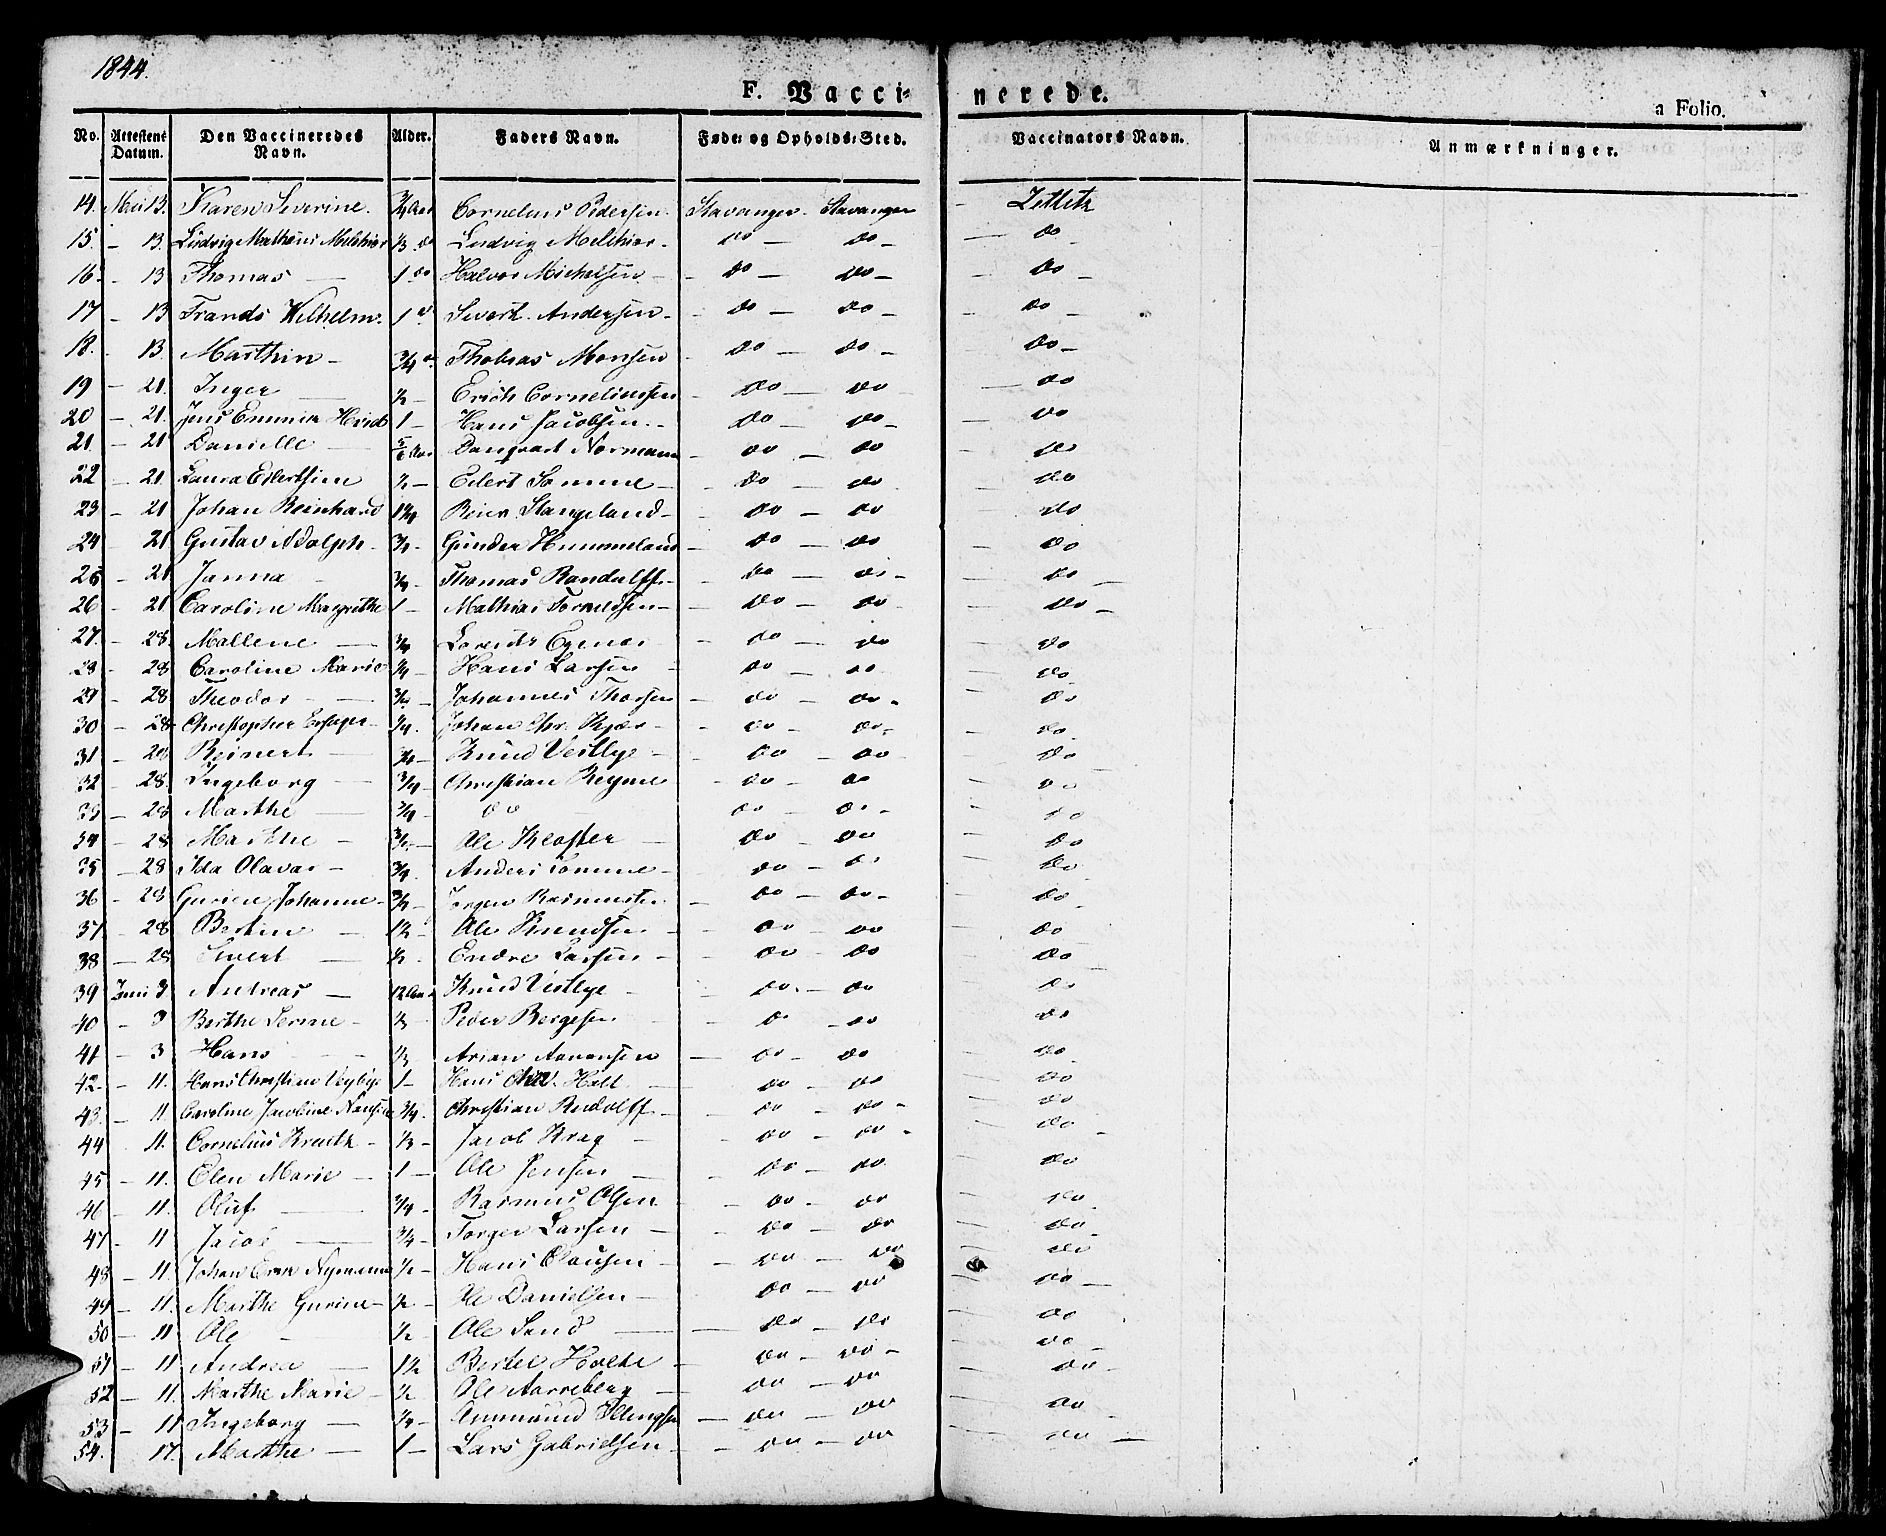 1844.
F. Vacci- nerede.
a Folio.
No. Attestens Datum. Den Vaccineredes Navn. Alder. Faders Navn. Føde- og Opholds-Sted. Vaccinators Navn. Anmærkninger.
14. Mai 13. Karen Severine. 3/4 Aar Cornelius Pedersen. Stavanger. Stavanger — Zetlitz
15. — 13. Ludvig Mathæus Melchior 1/3 do Ludvig Melchior - do — do — — do -
16 - 13 Thomas — 1 do Halvor Michelsen - do — do — — do —
17 - 13 Frands Wilhelm. 1 do Sivert Andersen - do — do — — do —
18. - 13 Marthin - 3/4 do Thobias Monsen - do — do - — do -
19 — 21. Inger — 1/2 — Erich Corneliussen do — do — do
20 — 21. Jens 1 — Hans Jacobsen. - do — do - — do
21 — 21 Danielle — 5/6 Aar Danqvart Normann - do — do — do
22 — 21. Laura Eilertsine 1/2 — Eilert Sømme - - do — do — do
23 — 21 Johan Reinhard 1 1/4 Reier Stangeland - - do — do — do
24 — 21 Gustav Adolph - 3/4 - Gunder Hummeland - do — do — do
25 — 21 Janna - 3/4 - Thomas Randulff - - do — do - — do —
26 — 21 Caroline Margrethe 1 - Mathias - - do — do — do —
27. - 28. Mallene — 3/4 Lorents - do — do — do
28 - 28 Caroline Marie 1/4 - Hans Larsen - do — do — do
29 - 28 Theodor - 3/4 - Johannes Thorsen - do — do - - do
30 - 28 Christopher 1/4. Johan Chr. Kjær - - do — do - - do
31 - 28 Reinert — Knud Vestlye - - do — do — do
32 - 28. Ingeborg — 3/4 - Christian Reyme - do — do — do
33 — 28 Marthe — 3/4 - do do — do - — do
34 — 28 Marthe - Ole Kloster — do — do — do
35 — 28 Ida Olava - 3/4. Anders Sømme - - do — do — do
36 - 28 Gurine Johanne - 3/4 - Jørgen - do — do - - do
37. - 28 Bertin — 1 1/2 - Ole Knudsen - - do - do - do
38 — 28 Sivert — 1/2 - Endre Larsen - - do - do - do
39 Juni 3 Andreas — 12 Aar Knud Vestlye - - do - do - do
40 - 3 Berthe Serine - 1/3 - Peder Børgesen - do - do - do
41 - 3 Hans - - 1/3 Arian Aanensen — do - do - do
42. - 11. Hans Christine 1 — Hans Holt — do - do - do
43. - 11. Caroline Jacobine 3/4. Christian Rudolff - - do - do - - do
44 - 11. Cornelius - 1/3 - Jacob Krag - - do - do - - do -
45 - 11. Elen Marie - 1 — Ole Jensen — - do — do — do
46 - 11. Oluf — 3/4 - Rasmus Olsen - - do - do — do
47 - 11 Jacob — 3/4 - Torger Larsen — - do - do — do
48 - 11. Johan Nymann 1/2 - Hans Clausen - - do — do — do
49 — 11. Marthe Gurine — 1/2 — Ole Danielsen — do - do — do —
50 — 11 Ole - 1/2 - Ole Sand — — do — do — do
51 — 11 Andrea — 1 1/2 Bertel Holte - do — do - — do -
52 — 11. Marthe Marie - 1/2 - Ole Aarreberg — do — do — do -
53 — 11 Ingeborg — 1/4 - Ammund — do — do — do
54. 17. Marthe — 1 — Lars Gabrielsen - - do — do — do —